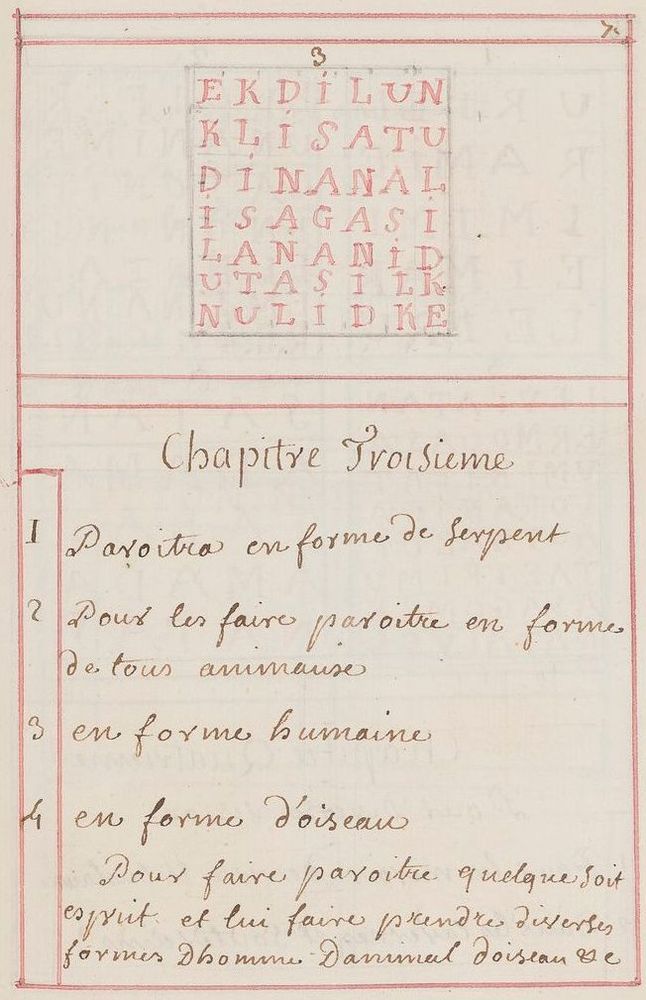 7.
3
E K D I L U N
K L I S A T U
D I N A N A L
I S A G A S I
L A N A N I D
U T A S I L K
N U L I D K E
Chapitre Troisieme
1 Paroitra en forme de Serpent
2 Pour les faire paroitre en forme
de tous animause
3 en forme humaine
4 en forme d'oiseau
Pour faire paroitre quelque soit
esprit et lui faire prendre diverses
formes Dhomme Danimal doiseau &c